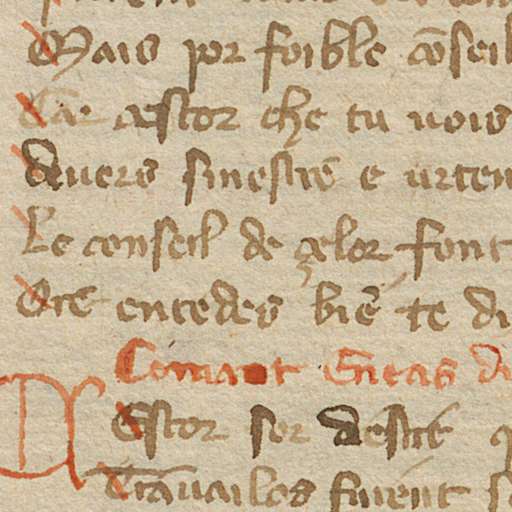 Mais por foible cõseil
Car astor che tu vois
devers sinestre e urten
Le conseil de çelor font
Ore entedes biẽ te di
Comant Eneas di
Estor sor destre q
Travailes furent s